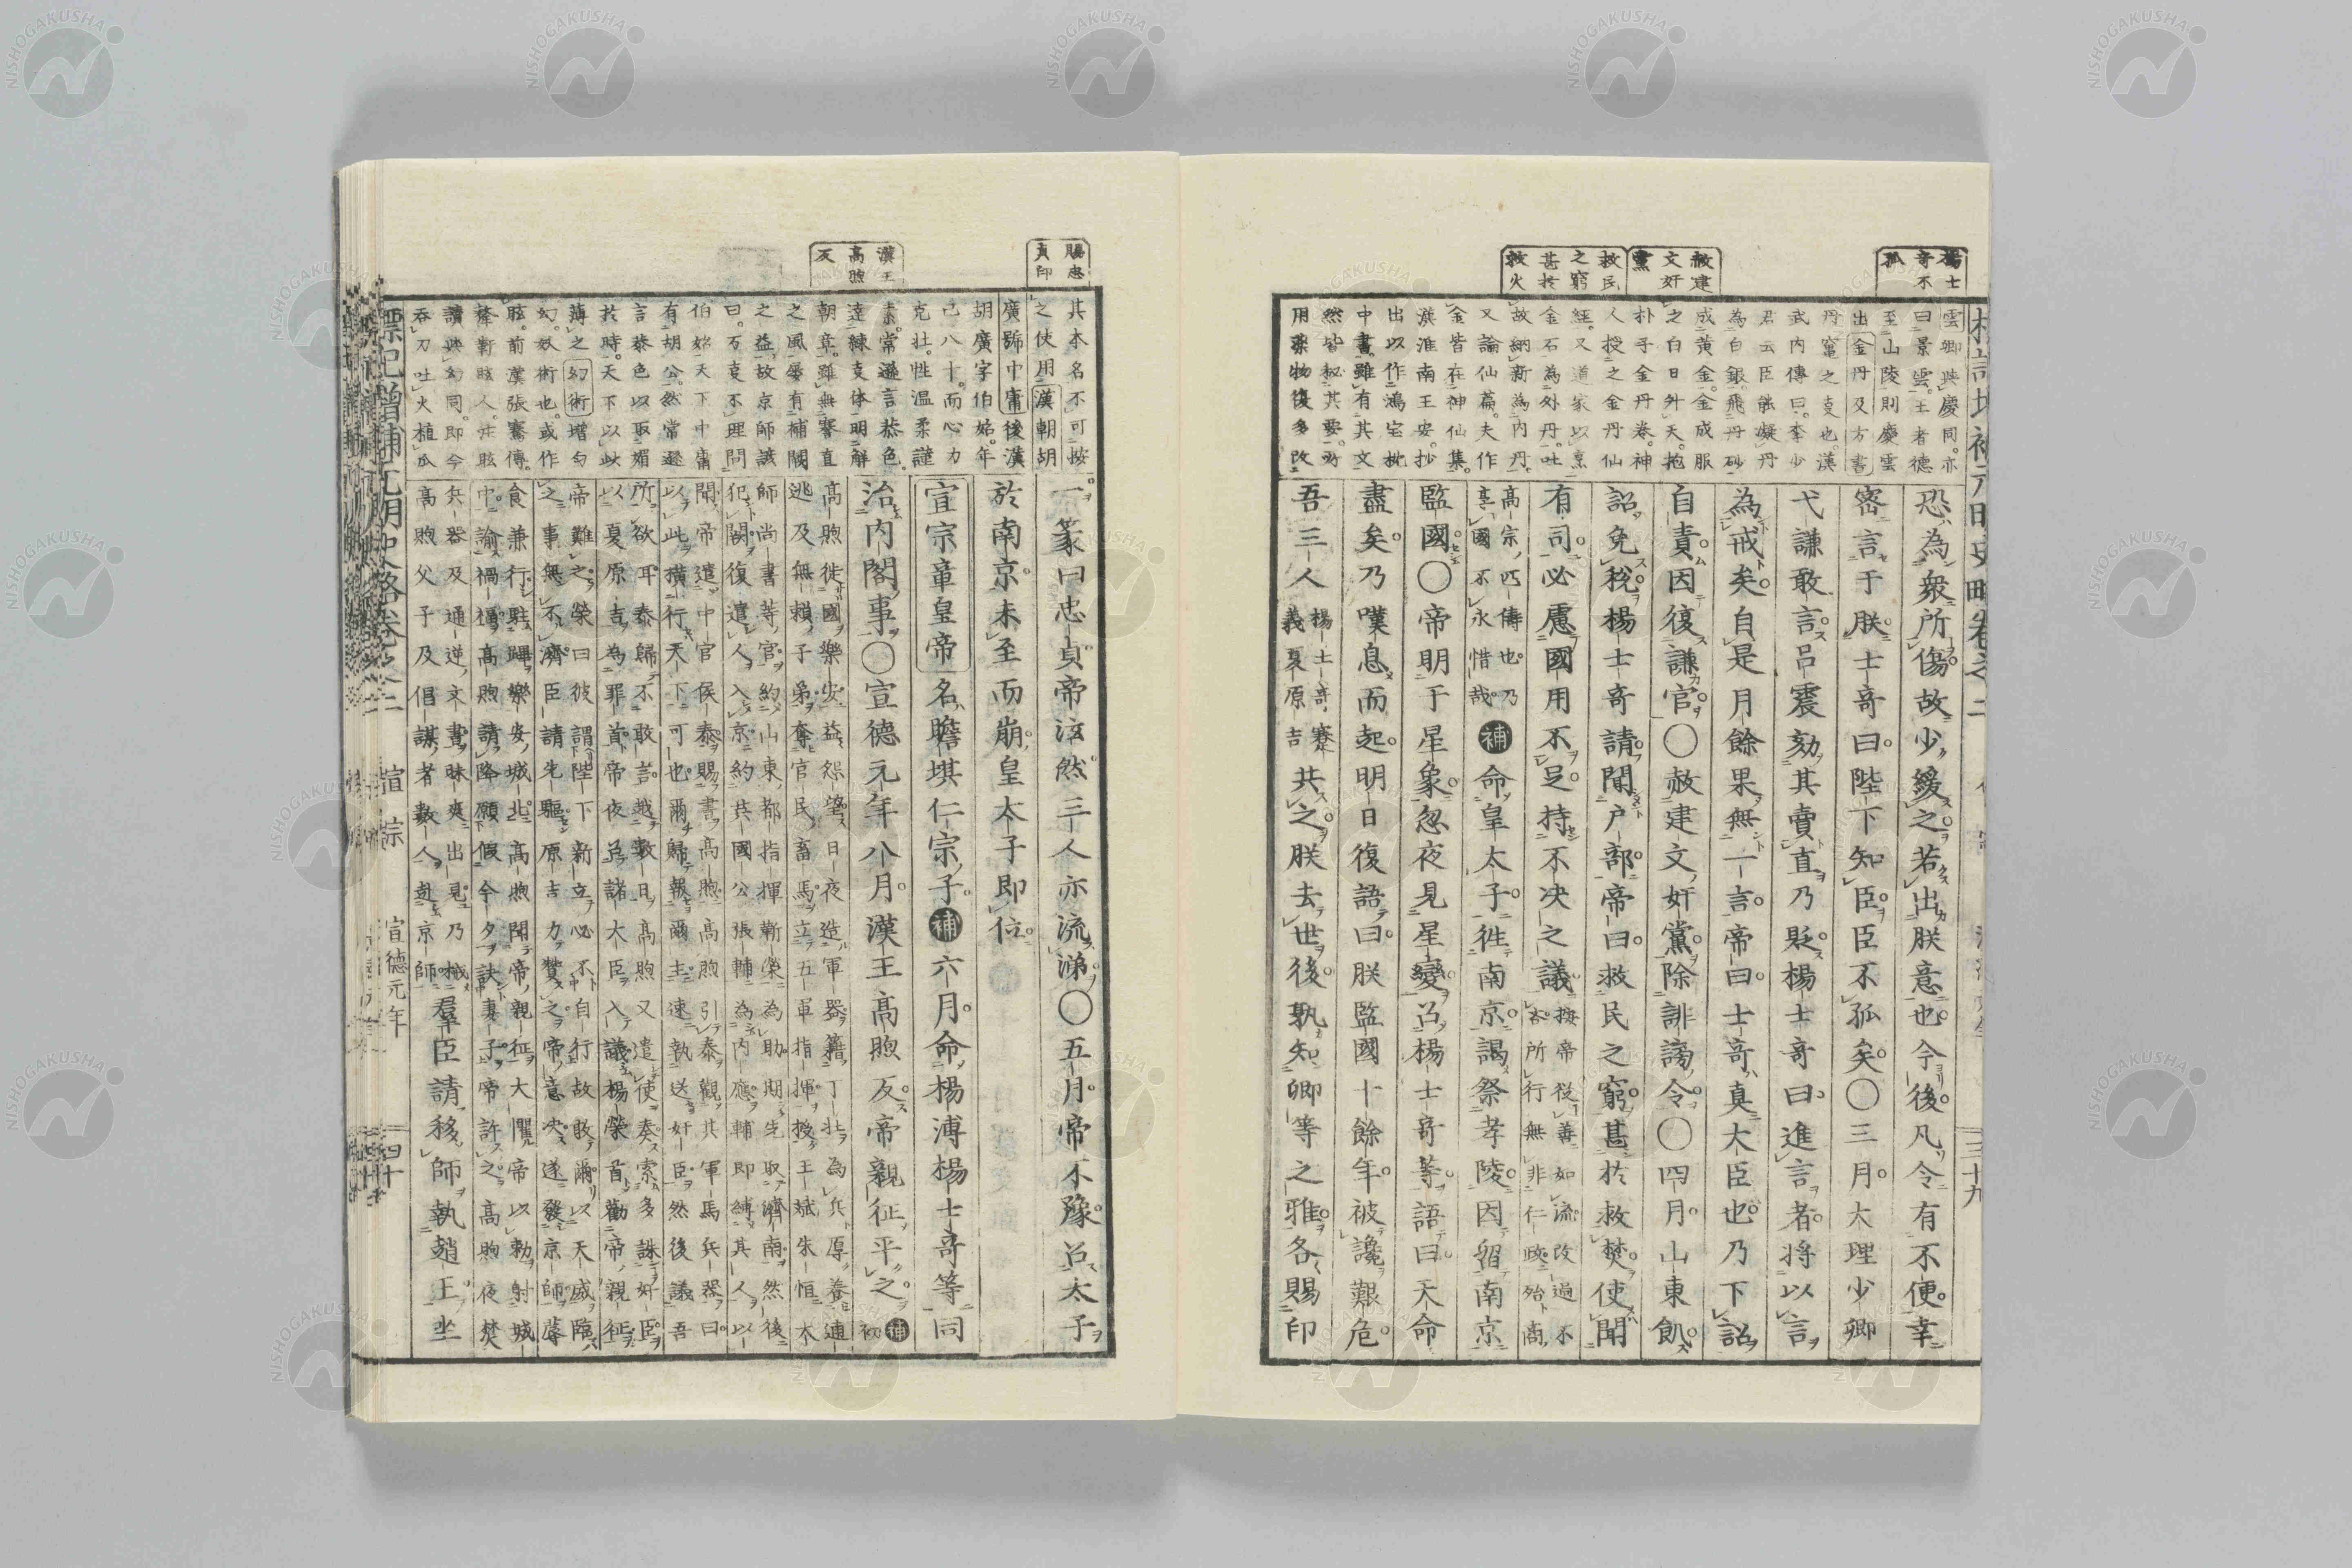 楊士
奇不
孤
赦建
文奸
黨
救民
之窮
甚於
救火
雲卿與慶同亦
曰景雲王者德
至山陵則慶雲
出金丹及方書
丹竈之叓也漢
武内傳曰李少
君云臣能凝丹
為白銀飛丹砂
成黄金金成服
之白日升天抱
朴子金丹卷神
人授之金丹仙
經又道家以烹
金石為外丹吐
故納新為内丹
又論仙篇夫作
金皆在神仙集
漢淮南王安抄
出以作鴻宝枕
中書雖有其文
然皆秘其要
用藥物復多改
恐為衆所傷故少緩之若出朕意也今後凡令有不便幸
密言于朕士奇曰陛下知臣臣不孤矣〇三月大理少卿
弋謙敢言呂震劾其賣直乃貶楊士奇曰進言者將以言
為戒矣自是月餘果無一言帝曰士奇真大臣也乃下詔
自責因復謙官〇赦建文奸黨除誹謗令〇四月山東飢
詔免稅楊士奇請聞戸部帝曰救民之窮甚於救焚使聞
有司必慮國用不足持不决之議按帝從善如流改過不吝所行無非仁政殆商
高宗匹儔也乃享國不永惜哉補命皇太子徃南京謁祭孝陵因留南京
監國〇帝明于星象忽夜見星變召楊士奇等語曰天命
盡矣乃嘆息而起明日復語曰朕監國十餘年被讒艱危
吾三人楊士奇蹇義夏原吉共之朕去世後孰知卿等之雅各賜印
三十九
賜忠
貞印
漢王
高煦
反
其本名不可按
之使用漢朝胡
廣號中庸後漢
胡廣字伯始年
已八十而心力
克壮性温柔謹
素常遜言恭色
達練叓体明解
朝章雖無謇直
之風屡有補闕
之益故京師諺
曰万叓不理問
伯始天下中庸
有胡公然常遜
言恭色以取媚
於時天下以此
薄之幻術増句
幻妖術也或作
眩前漢張騫傳
犛靬眩人
讀與幻同即今
吞刀吐火植瓜
一篆曰忠貞帝泫然三人亦流涕〇五月帝不豫召太子
於南京未至而崩皇太子即位
宣宗章皇帝名瞻基仁宗子補六月命楊溥楊士奇等同
治内閣事〇宣德元年八月漢王高煦反帝親征平之補初
高煦徙國樂安益怨望日夜造軍器籍丁壮為兵厚養
逃及無賴子弟奪官民畜馬立五軍指揮授王斌朱恒太
師尚書等官約山東都指揮靳榮為助期先取濟南然後
犯闕復遣人入京約英國公張輔為内應輔即縛其人以
聞帝遣中官侯泰賜書高煦高煦引泰觀其軍馬兵器曰
以此横行天下可也爾歸報爾主速執送奸臣然後議吾
所欲耳泰歸不敢言越數日高煦又遣使奏索多誅奸臣
以夏原吉為罪首帝夜召諸大臣入議楊榮首勸帝親征
帝難之榮曰彼謂陛下新立必不自行故敢爾以天威臨
之事無不濟臣請先驅原吉力贊之帝意决遂發京師蓐
食兼行駐蹕樂安城北高煦聞帝親征大懼帝以勅射城
中諭禍福高煦請降願假今夕訣妻子帝許之高煦夜焚
兵器及通逆文書昧爽出見乃械
高煦父子及倡謀者數人赴京師羣臣請移師執趙王坐
標記增補元明史略卷之二 宣宗 宣德元年 四十